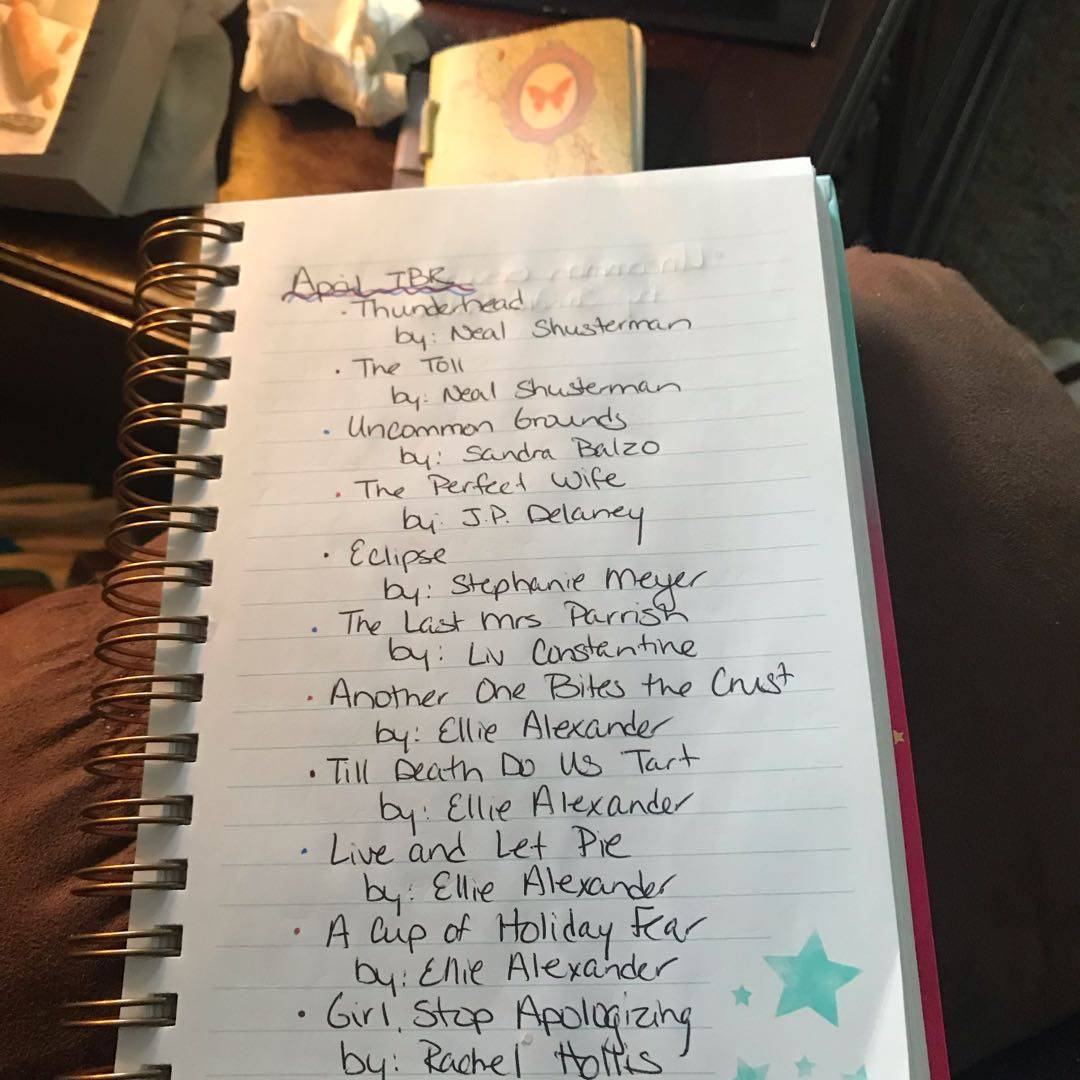 April TBR
· Thunderhead
by: Neal Shusterman
· The Toll
by: Neal Shusterman
· Uncommon Grounds
by: Sandra Balzo
· The Perfect Wife
by: J.P. Delaney
· Eclipse
by: Stephanie Meyer
· The Last Mrs Parrish
by: Liv Constantine
· Another One Bites the Crust
by: Ellie Alexander
· Till Death Do Us Tart
by: Ellie Alexander
· Live and Let Pie
by: Ellie Alexander
· A Cup of Holiday Fear
by: Ellie Alexander
· Girl, Stop Apologizing
by: Rachel Hollis